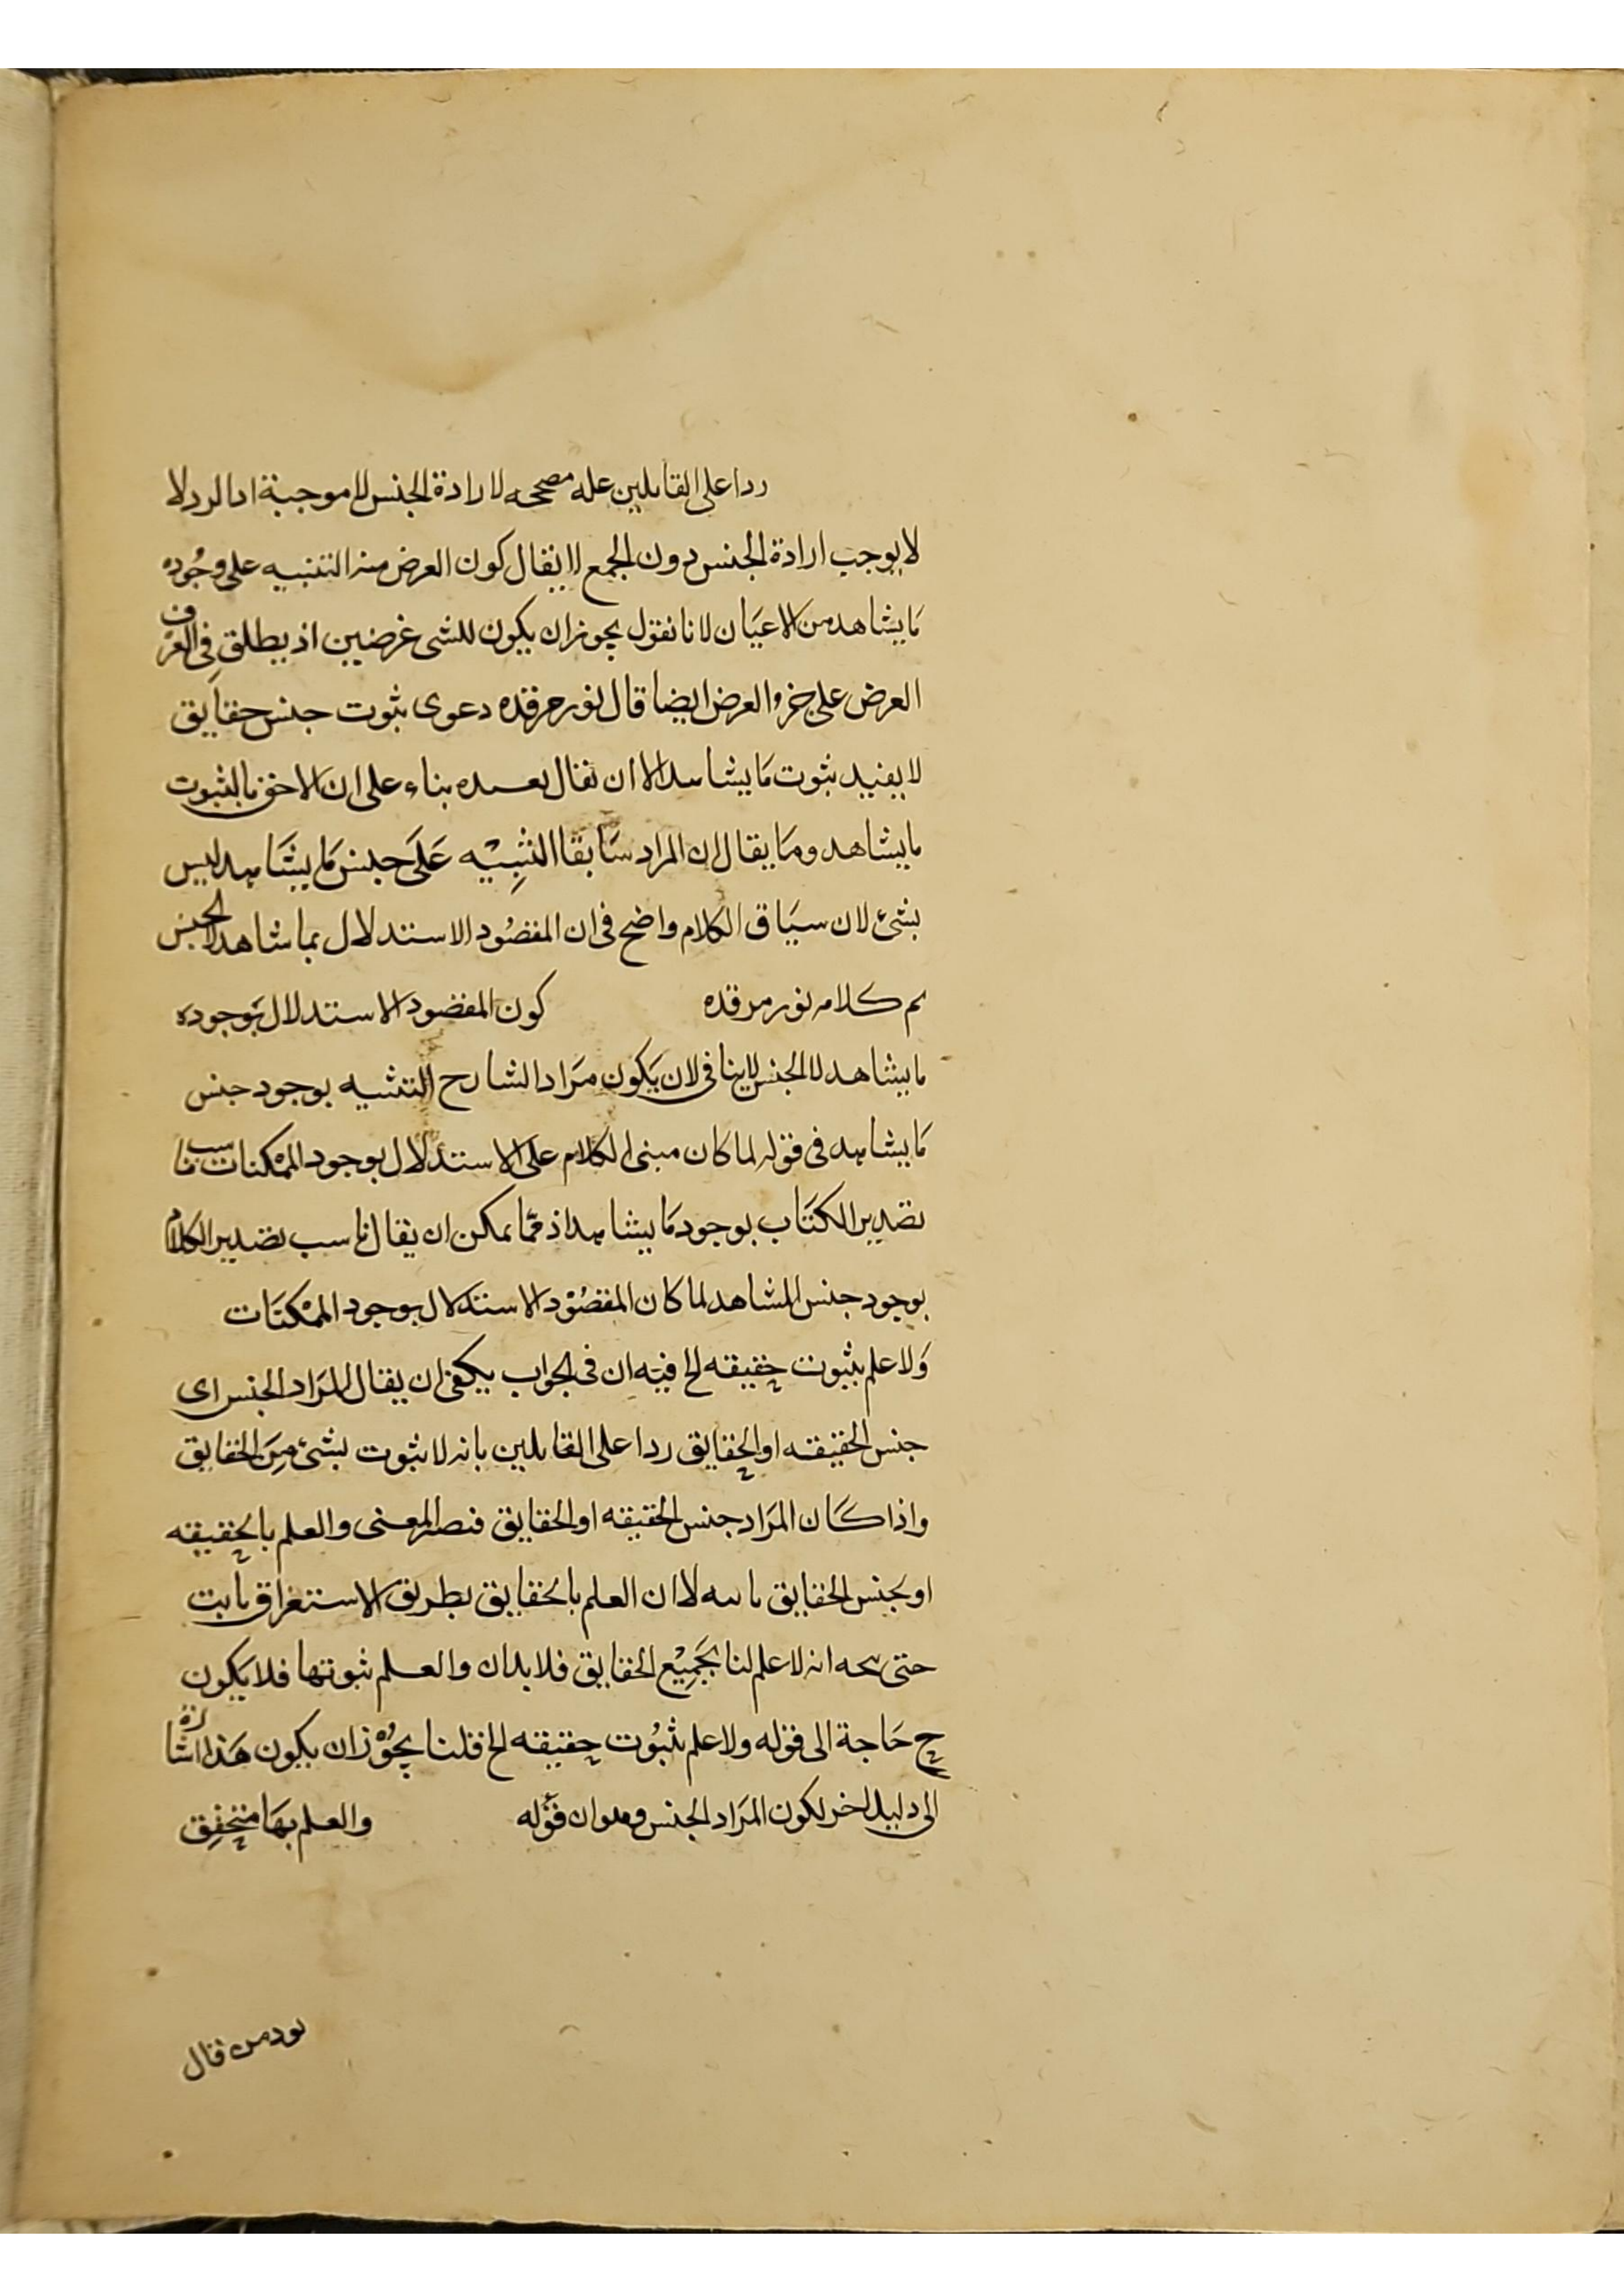 ردا على القايلين عله مصححه لارادة الجنس لا موجبة اد الرد لا
لا يوجب ارادة الجنس دون الجمع لا يقال كون العرض منه التنبيه على وجوده
ما يشاهد من الاعيان لانا نقول يجوز ان يكون للشى غرضين اذ يطلق فى العرف
العرض على جزو العرض ايضا قال نور مرقده دعوى ثبوت جنس حقايق
لا يفيد ثبوت ما يشاهد الا ان يقال بناء على ان الاحق بالثبوت
ما يشاهد وما يقال ان المراد سابقا التنبيه على جنس ما يشاهد ليس
بشئ لان سياق الكلام واضح فى ان المقصود الاستدلال بما شاهد لا لجنس
تم كلامه نور مرقده كون المقصود الاستدلال بوجوده
ما يشاهد لا الجنس لا ينافى لان يكون مراد الشارح التنبيه بوجود جنس
ما يشاهد فى قوله لما كان مبنى الكلام على الاستدلال بوجود الممكنات ناسب
تصدير الكتاب بوجود ما يشاهد اذ مما يمكن ان يقال ناسب تصدير الكلام
بوجود جنس المشاهد لما كان المقصود الاستدلال بوجود الممكنات
ولا علم بثبوت حقيقه الخ فيه ان فى الجواب يكفى ان يقال المراد الجنس اى
جنس الحقيقه او الحقايق ردا على القايلين بانه لا ثبوت لشئ من الحقايق
واذا كان المراد جنس الحقيقه او الحقايق فصار المعنى والعلم بالحقيقه
او بجنس الحقايق لا ان العلم بالحقايق بطريق الاستغراق ثابت
حتى انه لا علم لنا بجميع الحقايق فلا بد ان والعلم ثبوتها فلا يكون
ح حاجة الى قوله ولا علم بثبوت حقيقه الخ قلنا يجوز ان يكون هذا اشارة
الى دليل اخر لكون المراد الجنس وهو ان قوله والعلم بها متحقق
من قال